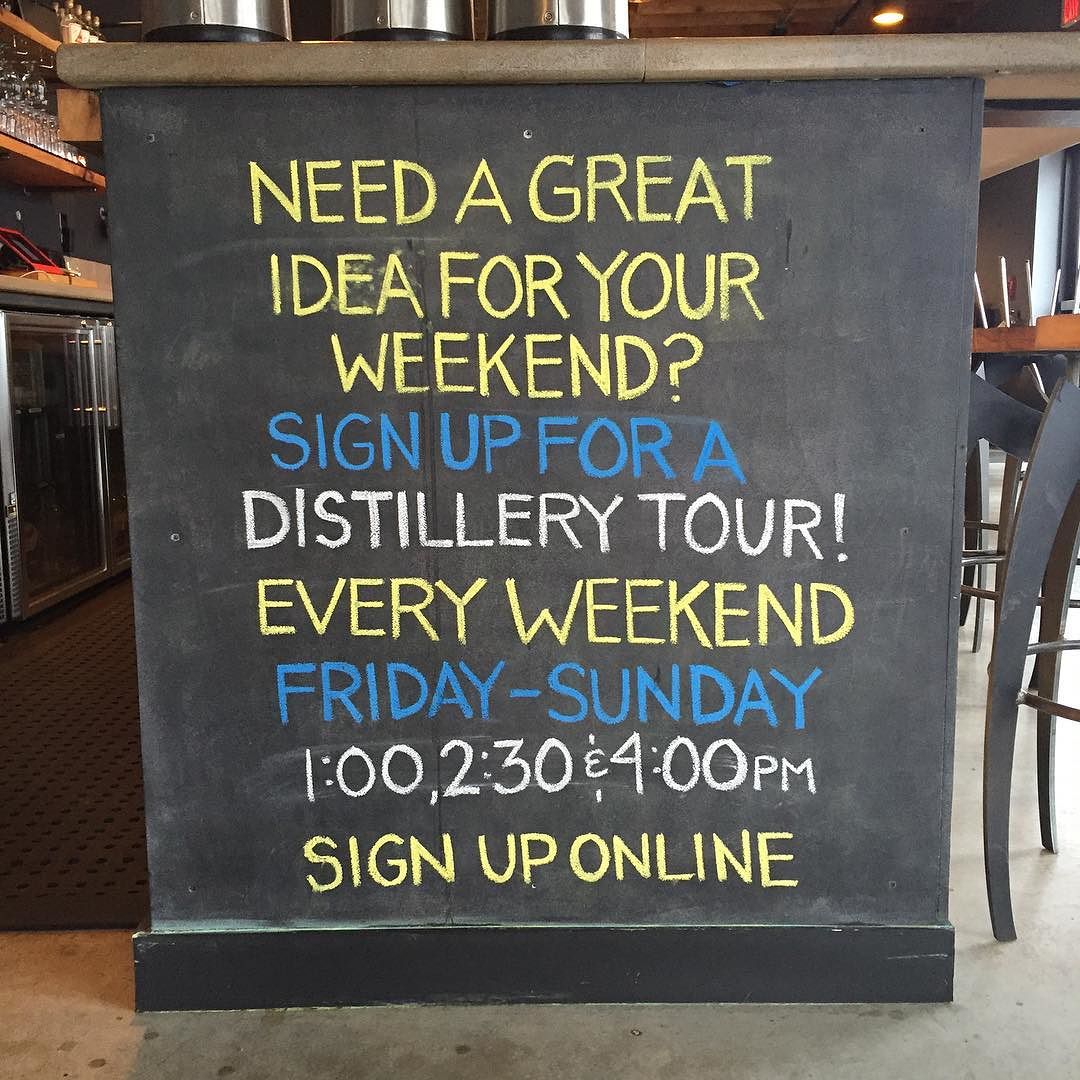 NEED A GREAT
IDEA FOR YOUR
WEEKEND?
SIGN UP FOR A
DISTILLERY TOUR!
EVERY WEEKEND
FRIDAY-SUNDAY
1:00, 2:30 & 4:00PM
SIGN UP ONLINE